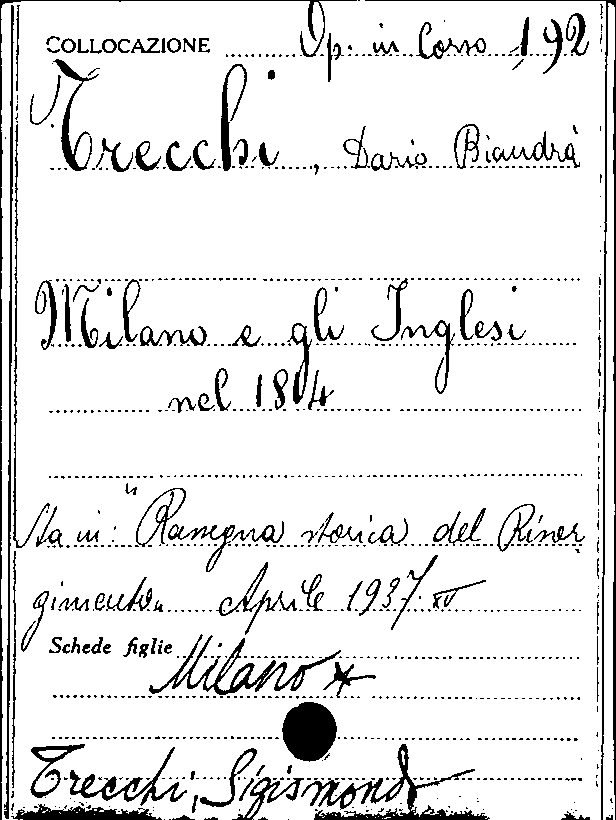 COLLOCAZIONE Op. in Corso 192
Trecchi, Dario Biandrà
Milano e gli Inglesi
nel 1814
Sta in: "Rassegna storica del Risor
gimento„ Aprile 1937. XV
Schede figlie Milano *
Trecchi, Sigismondo